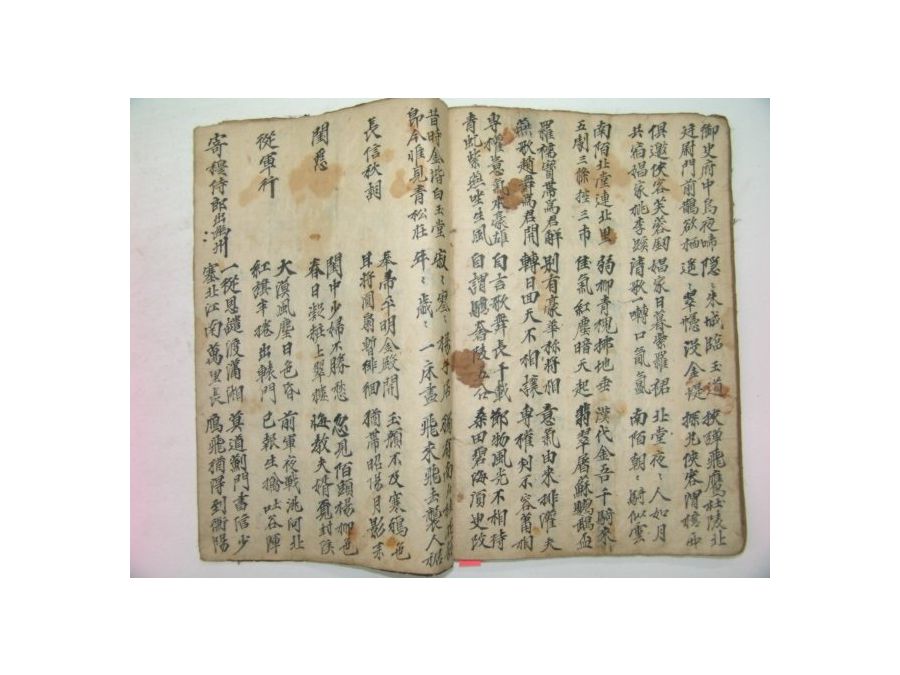 御史府中烏夜啼 隱〻朱城臨玉道 挾彈飛鷹杜陵北
廷尉門前鵲欲栖 遙〻翠幰沒金堤 探丸俠客渭橋西
俱邀俠客芙蓉劒 娼家日暮紫羅裙 北堂夜〻人如月
共宿娼家桃李蹊 清歌一囀口氤氳 南陌朝〻騎似雲
南陌北堂連北里 弱柳青槐拂地垂 漢代金吾千騎來
五劇三條控三市 佳氣紅塵暗天起 翡翠屠蘇鸚鵡盃
羅襦寶帶爲君解 別有豪華称將相 意氣由來排灌夫
燕歌趙舞爲君開 轉日回天不相讓 專權判不容蕭相
專權意氣本豪雄 自言歌舞長千載 節物風光不相待
青虬紫燕坐生風 自謂驕奢凌五公 桑田碧海須臾改
昔時金階白玉堂 寂〻寥〻楊子居 獨有南山桂
即今惟見青松在 年〻歲〻一床書 飛來飛去襲人裾
長信秋詞 奉帚平明金殿開 玉顏不及寒鴉色
且將團扇暫徘徊 猶帶昭陽月影來
閨怨 閨中少婦不勝愁 忽見陌頭楊柳色
春日凝粧上翠樓 悔教夫婿覔封侯
從軍行 大漠風塵日色昏 前軍夜戰洮河北
紅旗半捲出轅門 已報生擒吐谷渾
寄穆侍郎出幽州 一從恩譴渡瀟湘 莫道薊門書信少
塞北江南萬里長 鴈飛猶得到衡陽